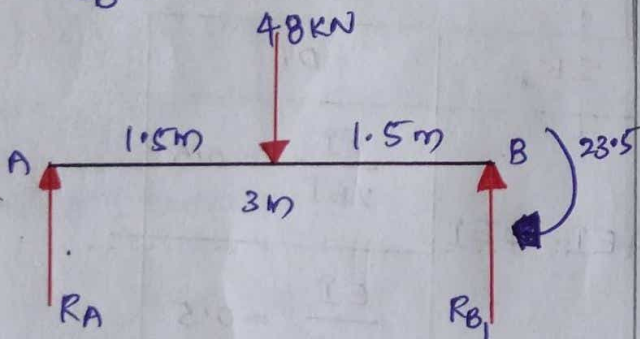 48KN
1.5m
1.5m
A
B
23.5
3m
RA
RB1